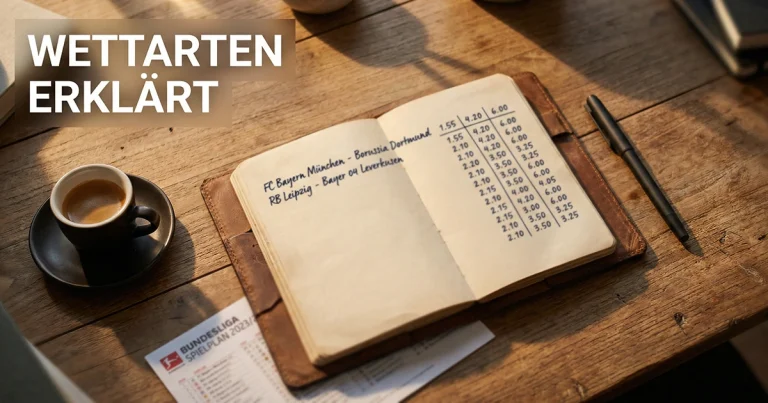 WETTARTEN
ERKLÄRT
FC Bayern München - Borussia Dortmund
RB Leipzig - Bayer 04 Leverkusen
1.55 4.20 6.00
1.55 4.20 6.00
2.10 4.20 6.00
2.10 4.20 3.25
2.20 3.50 3.25
2.10 3.50 6.00
2.10 3.50 4.05
2.15 4.00 6.00
2.10 3.00 3.25
2.15 3.50 3.25
2.10 3.50
BUNDESLIGA
SPIELPLAN 2023/